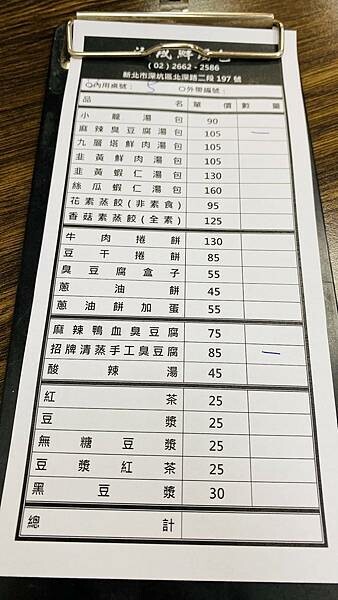 鮮湯包
(02) 2662-2586
新北市深坑區北深路二段 197 號
○內用桌號: 5 ○外帶編號:
品名 單價 數量
小龍湯包 90
麻辣臭豆腐湯包 105 一
九層塔鮮肉湯包 105
韭黃鮮肉湯包 105
韭黃蝦仁湯包 130
絲瓜蝦仁湯包 160
花素蒸餃(非素食) 95
香菇素蒸餃(全素) 125
牛肉捲餅 130
豆干捲餅 85
臭豆腐盒子 55
蔥油餅 45
蔥油餅加蛋 55
麻辣鴨血臭豆腐 75
招牌清蒸手工臭豆腐 85 一
酸辣湯 45
紅茶 25
豆漿 25
無糖豆漿 25
豆漿紅茶 25
黑豆漿 30
總計